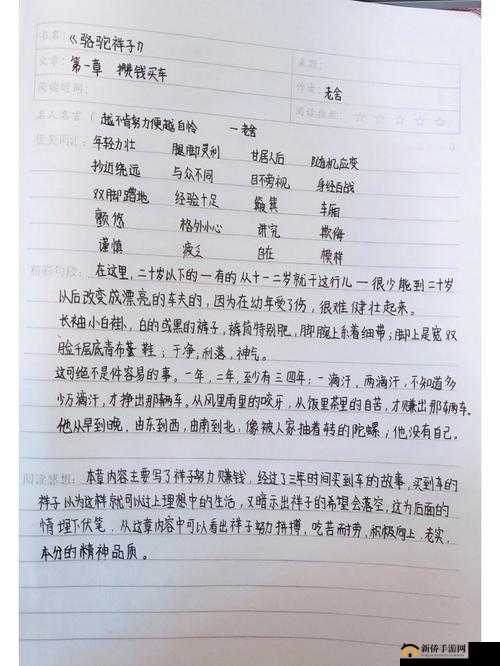 书名：《骆驼祥子》
文章：第一章 攒钱买车
阅读时间：
作者：老舍
阅读指数：☆☆☆☆☆
名人名言（越不肯努力便越自怜 一老舍
优美词汇：年轻力壮 腿脚灵利 甘居人后 随机应变
抄近绕远 与众不同 目不旁视 身经百战
双脚蹭地 经验十足 簸箕 车厢
颤悠 格外小心 讲究 欺侮
谨慎 疲乏 自在 模样
精彩句段：在这里，二十岁以下的一有的从十一二岁就干这行儿一很少能到二十岁
以后改变成漂亮的车夫的，因为在幼年受了伤，很难健壮起来。
长袖小白褂，白的或黑的裤子，裤筒特别肥，脚腕上系着细带；脚上是宽双
脸千层底青布鞋；干净，利落，神气。
这可绝不是件容易的事。一年，二年，至少有三四年；一滴汗，两滴汗，不知道多
少万滴汗，才挣出那辆车。从风里雨里的咬牙，从饭里茶里的自苦，才赚出那辆车。
他从早到晚，由东到西，由南到北，像被人家抽着转的陀螺；他没有自己。
阅读感想：本章内容主要写了祥子努力赚钱，经过了三年时间买到车的故事，买到车的
祥子以为这样就可以过上理想中的生活，又暗示出祥子的希望会落空，这为后面的
情埋下伏笔。从这章内容中可以看出祥子努力拼搏，吃苦而耐劳，积极向上，老实，
本分的精神品质。
新侨手游网